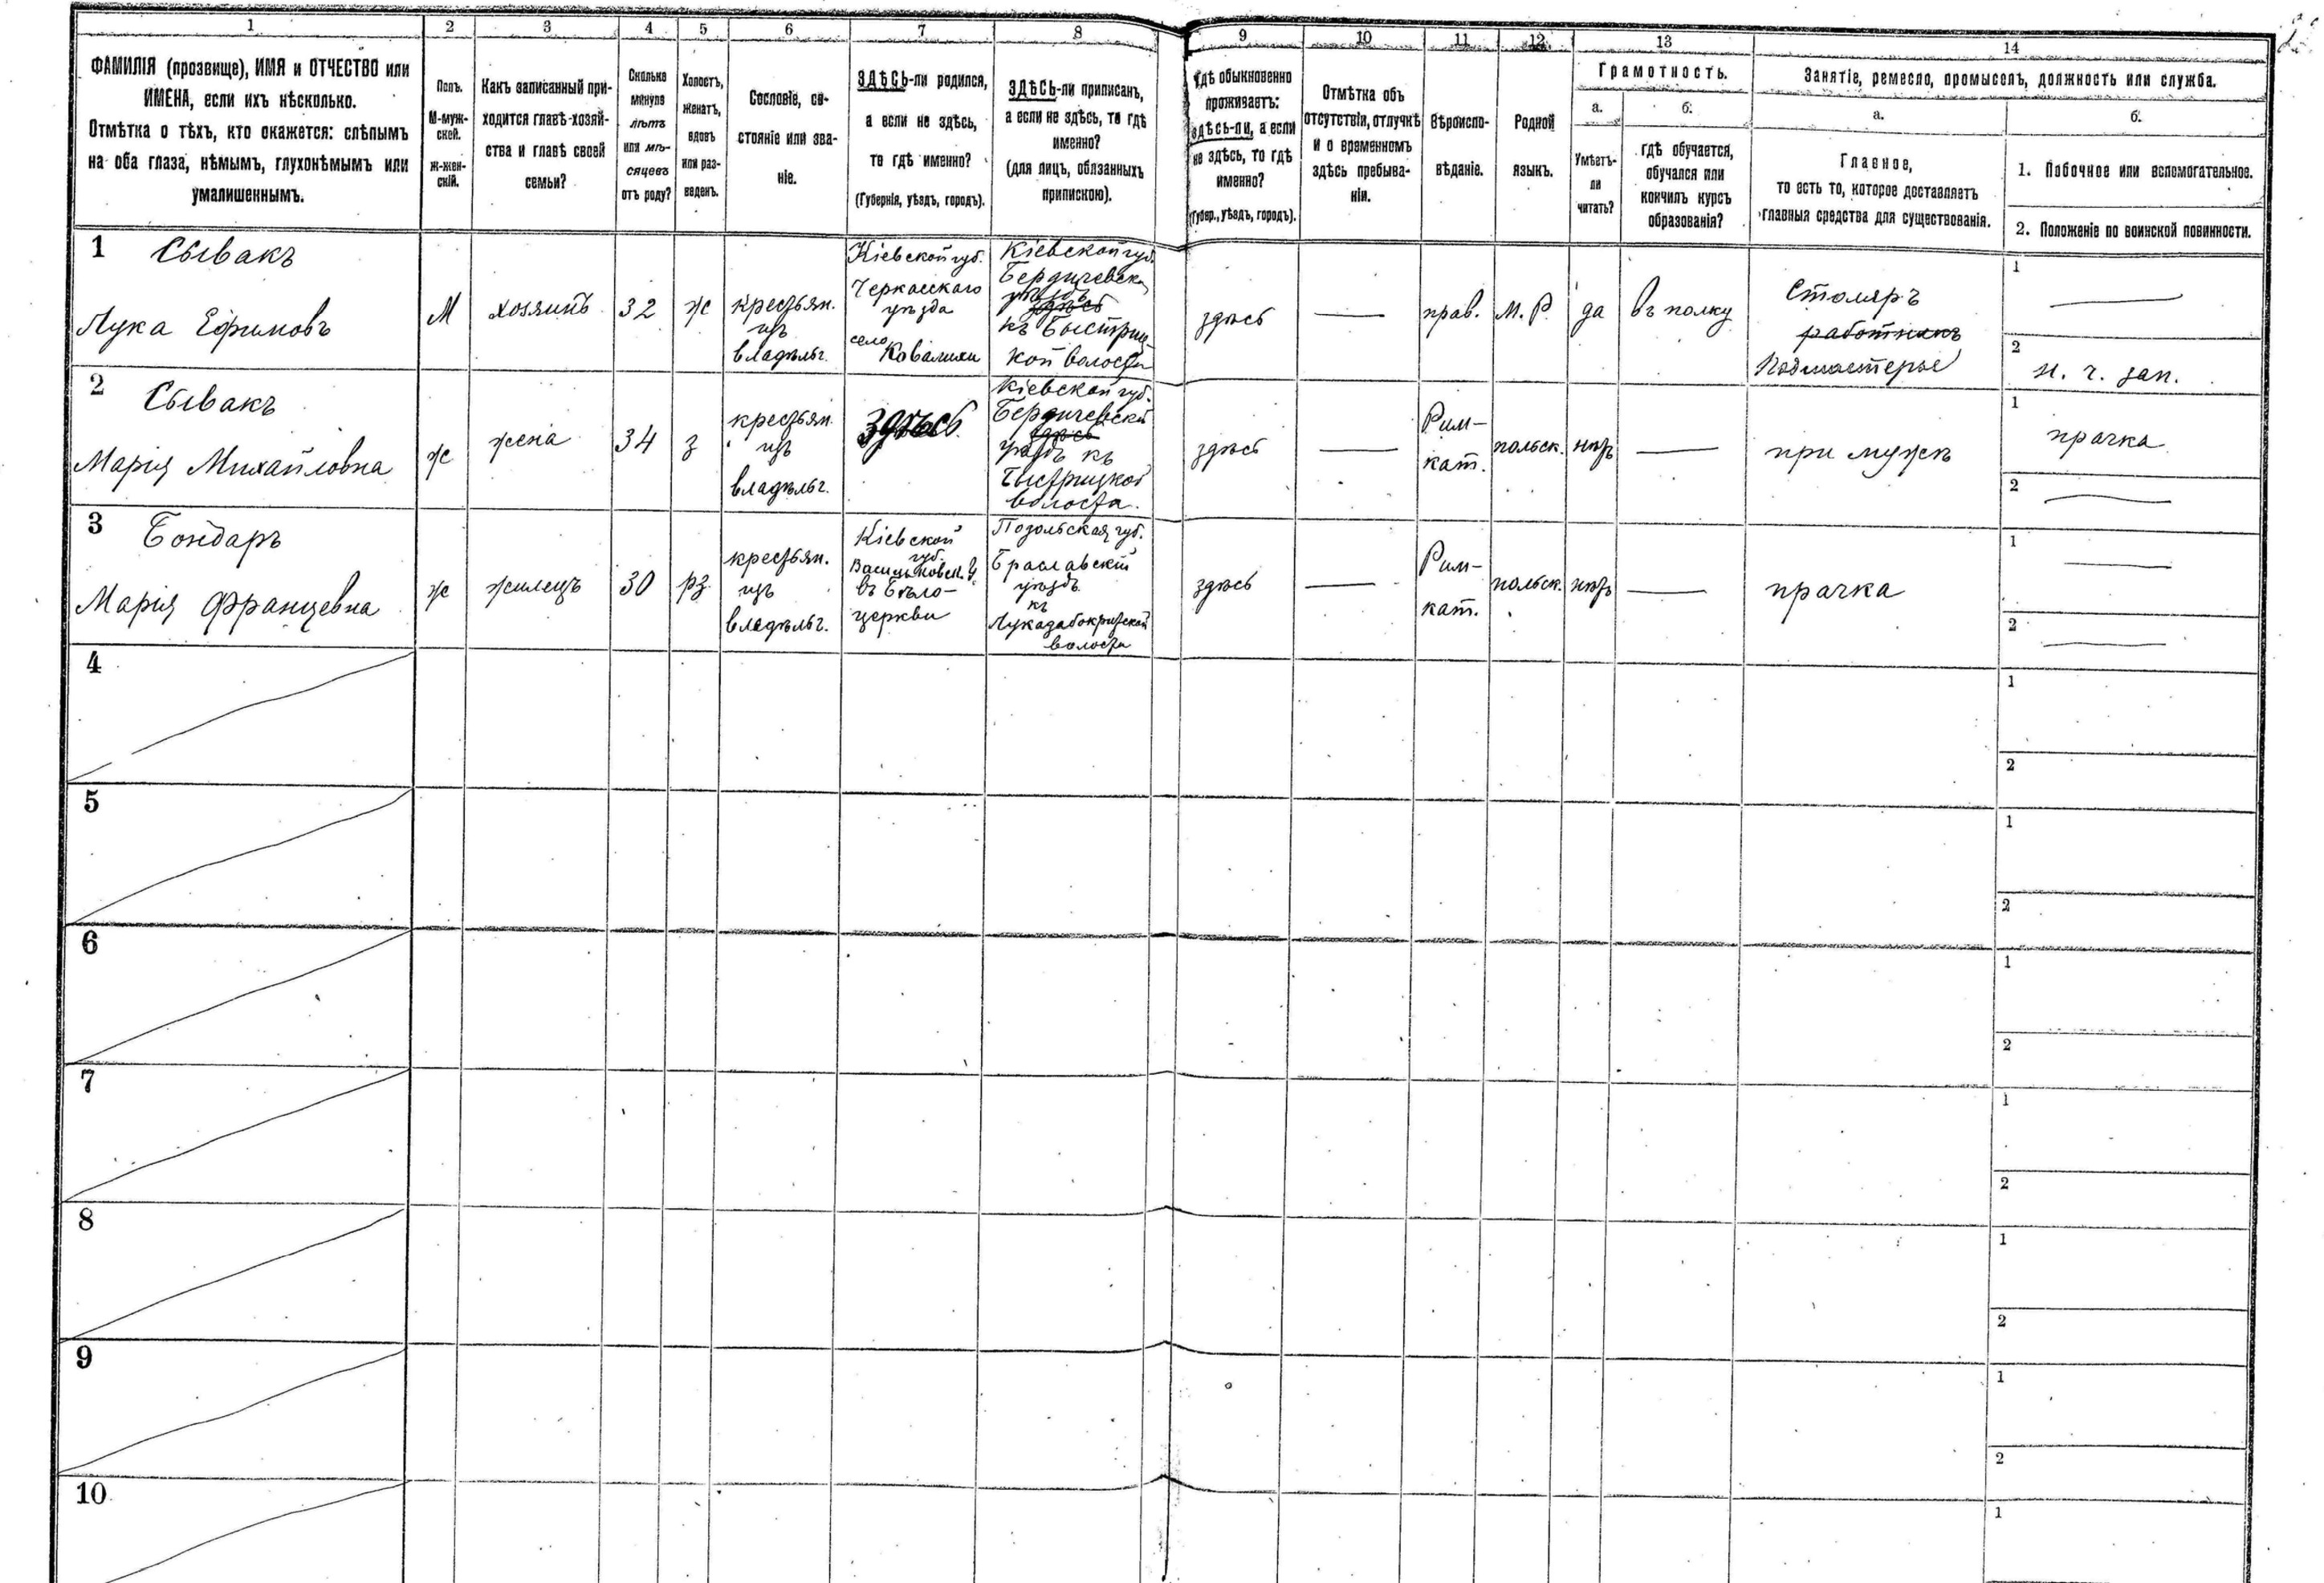 1
2
3
4
5
6
7
8
9
10
11
12
13
14
ФАМИЛІЯ (прозвище), ИМЯ и ОТЧЕСТВО или
ИМЕНА, если ихъ нѣсколько.
Отмѣтка о тѣхъ, кто окажется: слѣпымъ
на оба глаза, нѣмымъ, глухонѣмымъ или
умалишеннымъ.
Полъ.
М-муж-
ской.
Ж-жен-
скій.
Какъ записанный при-
ходится главѣ-хозяй-
ства и главѣ своей
семьи?
Сколько
минуло
лѣтъ
или мѣ-
сяцевъ
отъ роду?
Холостъ,
женатъ,
вдовъ
или раз-
веденъ.
Сословіе, со-
стояніе или зва-
ніе.
ЗДѢСЬ-ли родился,
а если не здѣсь,
то гдѣ именно?
(Губернія, уѣздъ, городъ).
ЗДѢСЬ-ли приписанъ,
а если не здѣсь, то гдѣ
именно?
(для лицъ, обязанныхъ
припискою).
Гдѣ обыкновенно
проживаетъ:
здѣсь-ли, а если
не здѣсь, то гдѣ
именно?
(Губер., уѣздъ, городъ).
Отмѣтка объ
отсутствіи, отлучкѣ
и о временномъ
здѣсь пребыва-
ніи.
Вѣроиспо-
вѣданіе.
Родной
языкъ.
Грамотность.
а.
б.
Умѣетъ-
ли
читать?
гдѣ обучается,
обучался или
кончилъ курсъ
образованія?
Занятіе, ремесло, промыселъ, должность или служба.
а.
б.
Главное,
то есть то, которое доставляетъ
главныя средства для существованія.
1. Побочное или вспомогательное.
2. Положеніе по воинской повинности.
1 Сывакъ
Лука Ефимовъ
М
хозяинъ
32
ж
крестьян.
изъ
владѣльч.
Кіевской губ.
Черкасскаго
уѣзда
село
Ковалихи
Кіевской губ.
Бердичевск
уѣздъ
здѣсь
къ Быстриц-
кой волости
здѣсь
—
прав.
М. Р.
да
въ полку
Столяръ
работникъ
Подмастерье
1 —
2 н. ч. зап.
2 Сывакъ
Марія Михайловна
ж
жена
34
з
крестьян.
изъ
владѣльч.
здѣсь
Кіевской губ.
Бердичевскій
здѣсь
уѣздъ къ
Быстрицкой
волости.
здѣсь
—
Рим-
кат.
польск.
нѣтъ
—
при мужѣ
1 прачка
2 —
3 Бондаръ
Марія Францевна
ж
жилецъ
30
рз
крестьян.
изъ
владѣльч.
Кіевской
губ.
Васильковск. у.
въ Бѣло-
церкви
Подольская губ.
Браславскій
уѣздъ
къ
волости
здѣсь
—
Рим-
кат.
польск.
нѣтъ
—
прачка
1 —
2 —
4
1
2
5
1
2
6
1
2
7
1
2
8
1
2
9
1
2
10
1